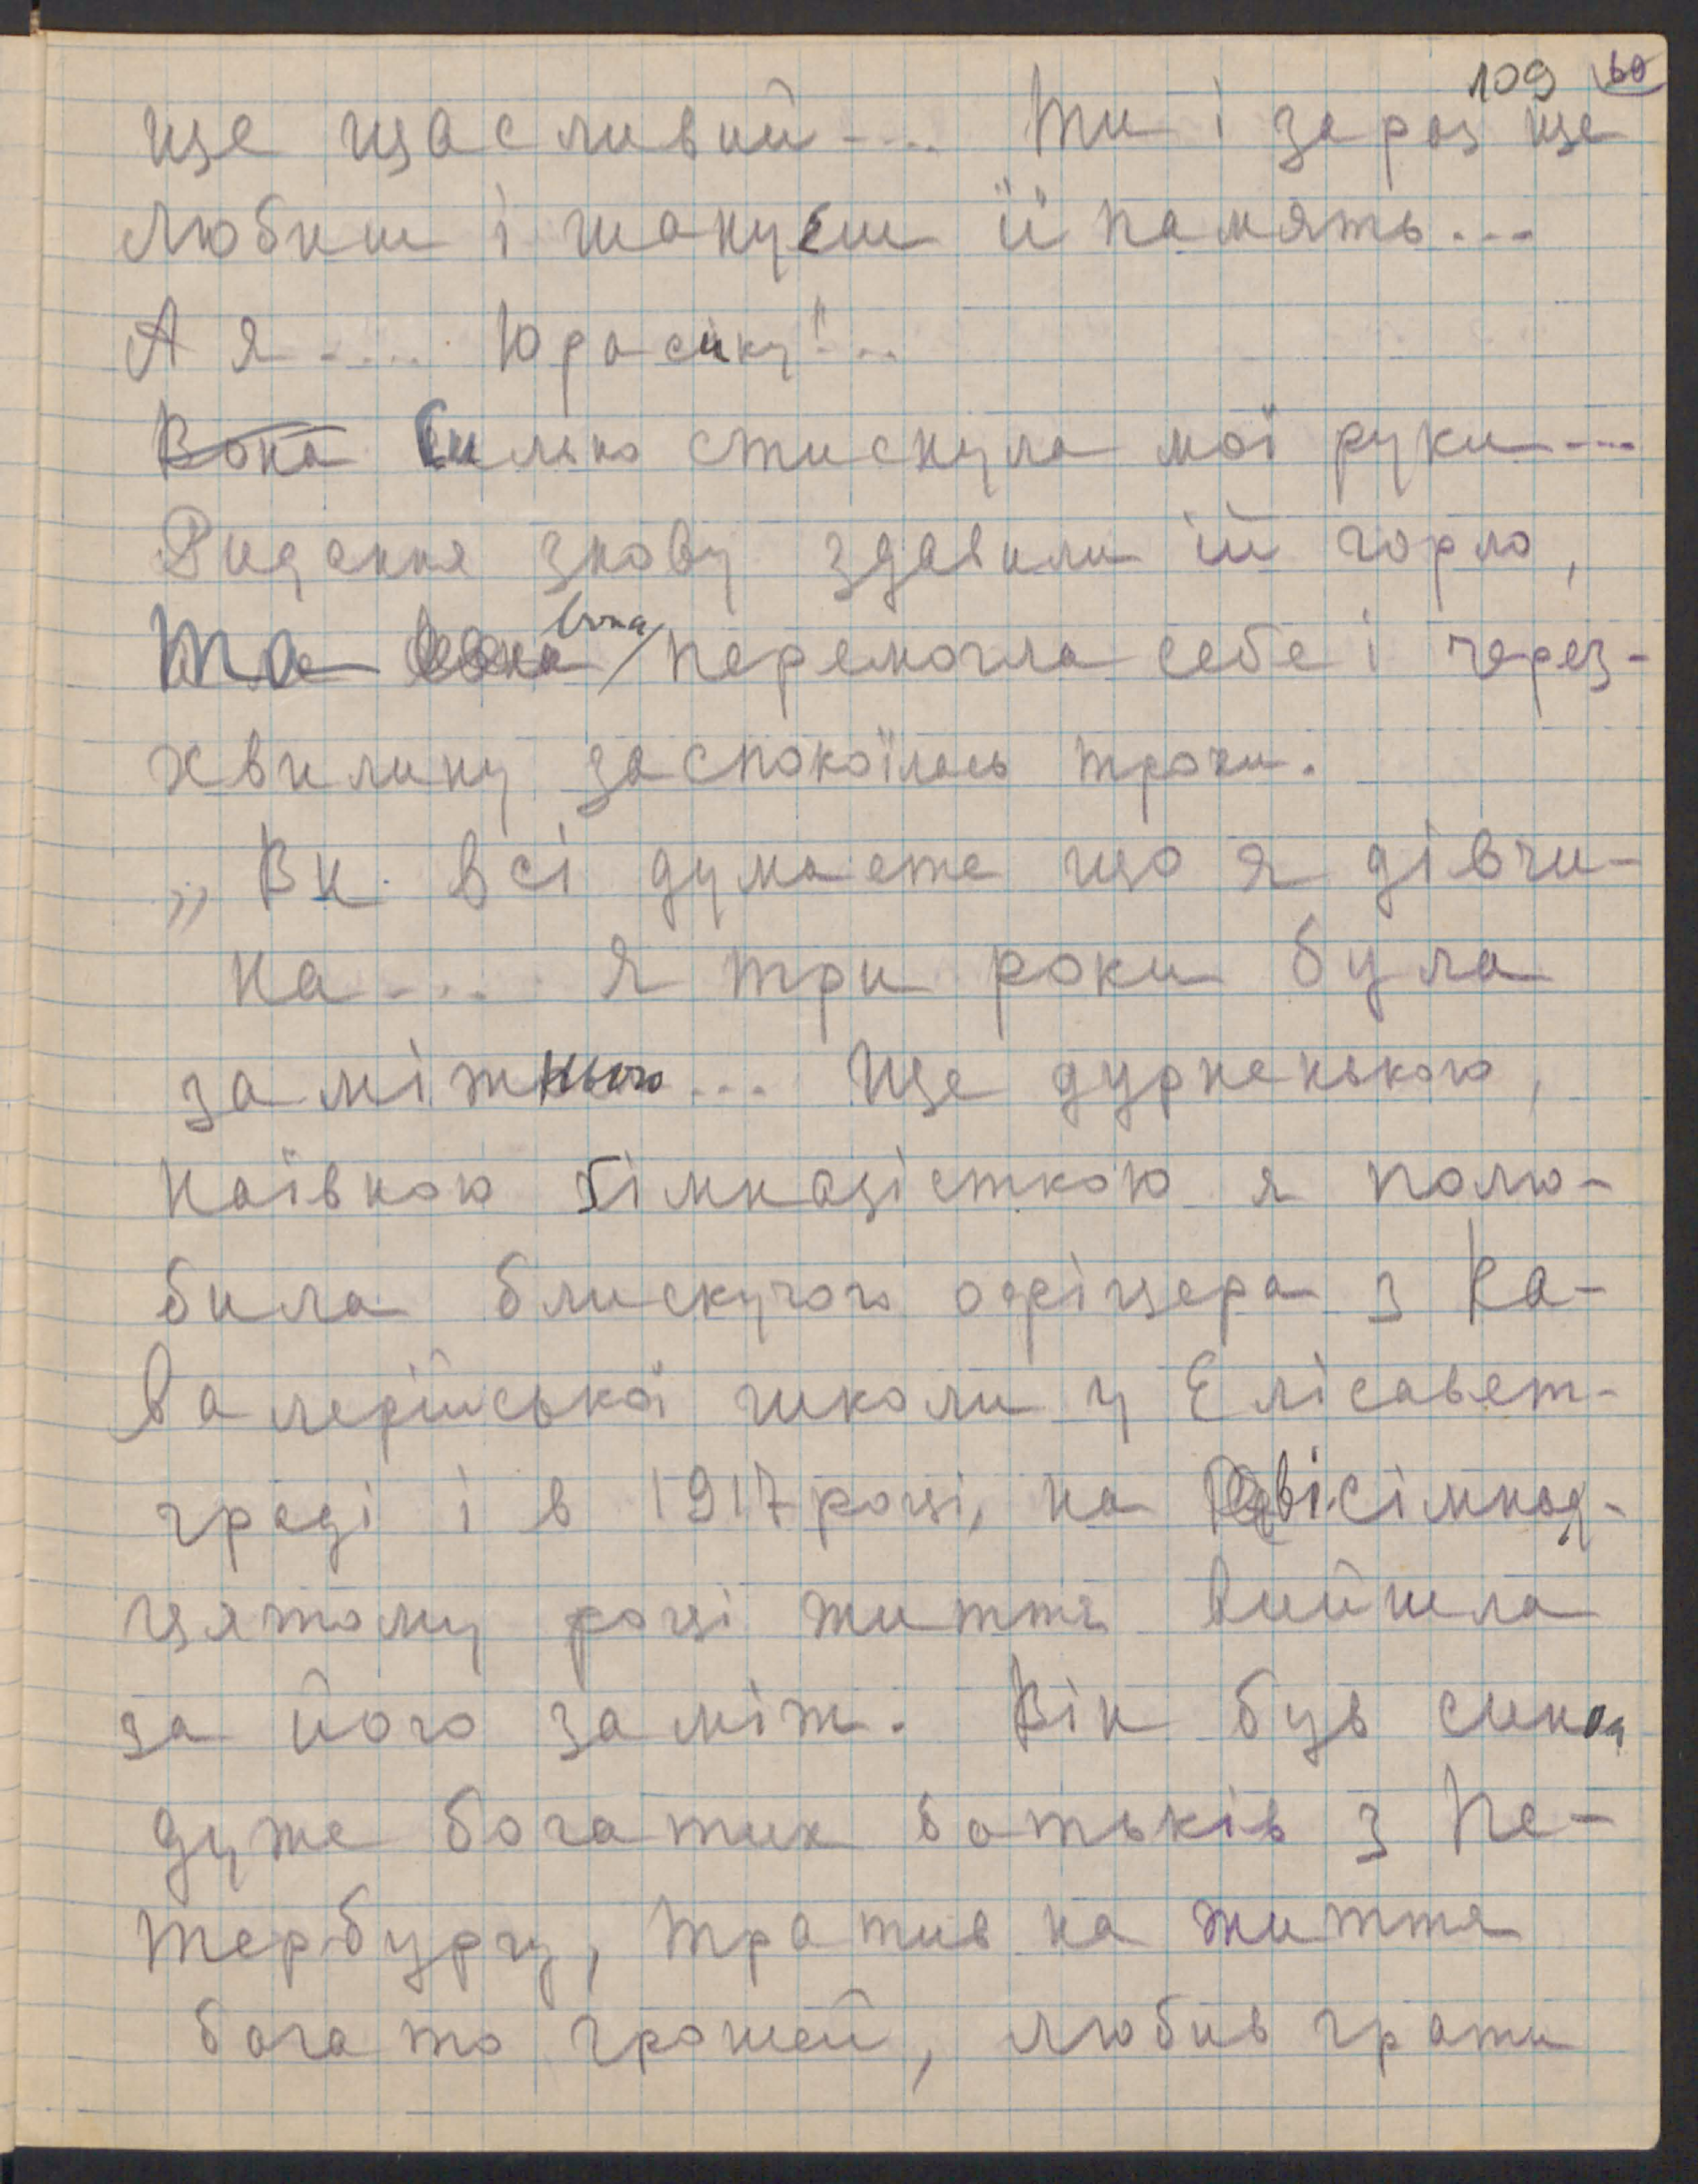 109 60
ще щасливий.... Ти і зараз ще
любиш і шануєш її память...
А я..... Юрасику!...
Вона Сильно стиснула мої руки....
Ридання знову здавили їй горло,
Та вона перемогла себе і через-
хвилину заспокоїлась трохи.
„Ви всі думаєте що я дівчи-
на.... Я три роки була
заміжньою... Ще дурненькою,
наївною ґімназісткою я полю-
била блискучого офіцера з Ка-
валерійської школи у Елісавет-
граді і в 1917 році, на вісімнад-
цятому році життя вийшла
за його заміж. Він був сином
дуже богатих батьків з Пе-
тербургу, тратив на життя
богато грошей, любив грати